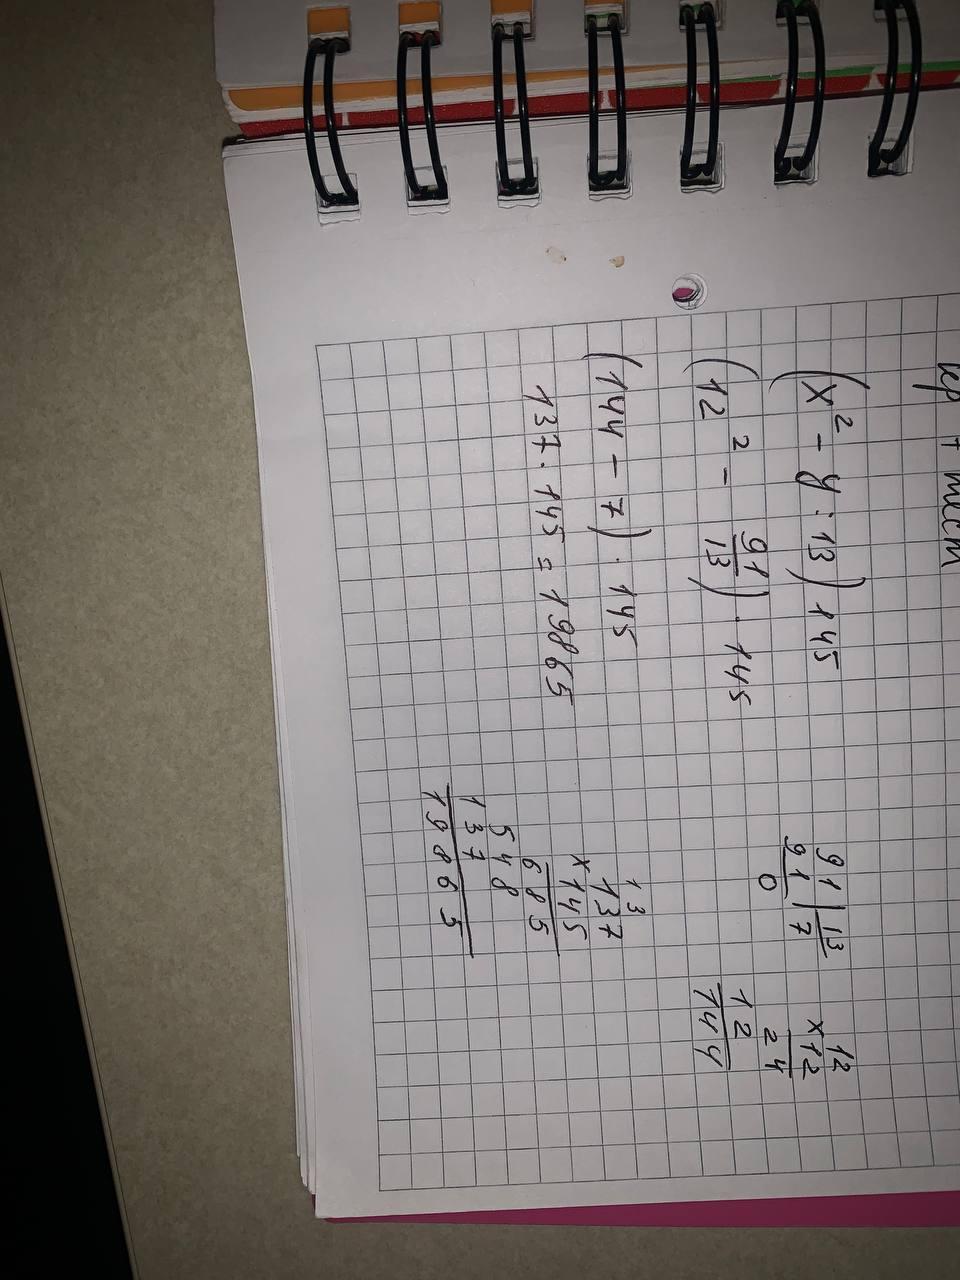 кр + тест
(x² - y : 13) 145
(12² - 91/13) · 145
(144 - 7) · 145
137 · 145 = 19865
91 | 13
91 | 7
0
12
x12
24
12
144
13
137
x145
685
548
137
19865